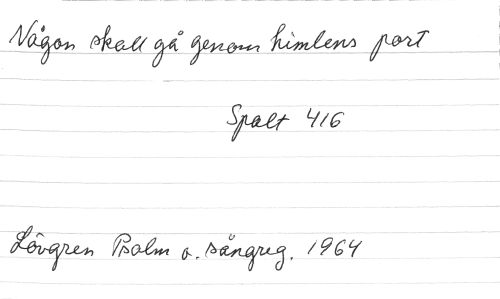 Någon skall gå genom himlens port
Spalt 416
Lövgren Psalm o. sångreg. 1964